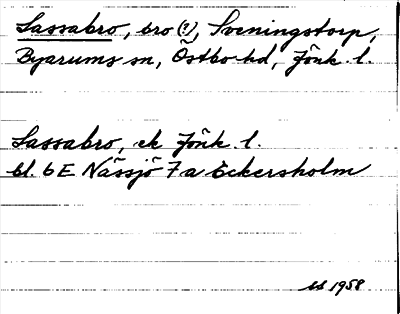 Sassabro, bro (?), Sveningstorp,
Byarums sn, Östbo hd, Jönk. l.
Sassabro, ek Jönk. l.
bl. 6E Nässjö 7a Eckersholm
1958